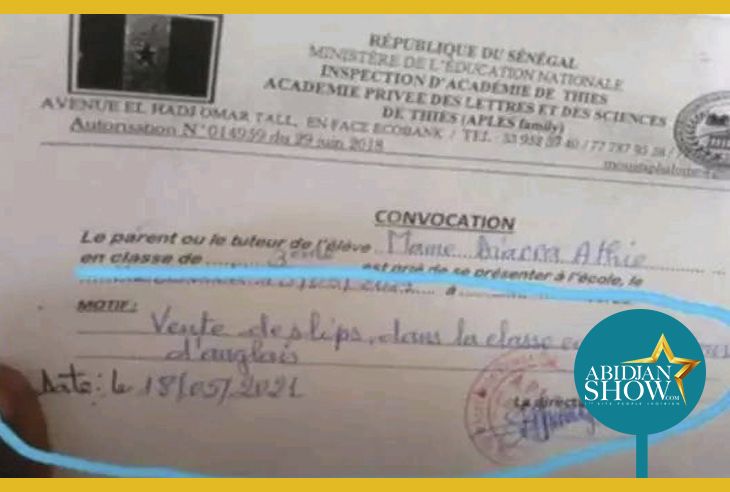 RÉPUBLIQUE DU SÉNÉGAL
MINISTÈRE DE L'ÉDUCATION NATIONALE
INSPECTION D'ACADÉMIE DE THIES
ACADEMIE PRIVEE DES LETTRES ET DES SCIENCES
DE THIES (APLES family)
AVENUE EL HADJ OMAR TALL, EN FACE ECOBANK / TEL
Autorisation N°014959 du 29 juin 2018
CONVOCATION
Le parent ou le tuteur de l'élève Mame Diarra Athie
en classe de 3eme est prié de se présenter à l'école, le
à
MOTIF:
Vente des lips, dans la classe
d'anglais
Date: le 18/05/2021
ABIDJAN
SHOW.COM